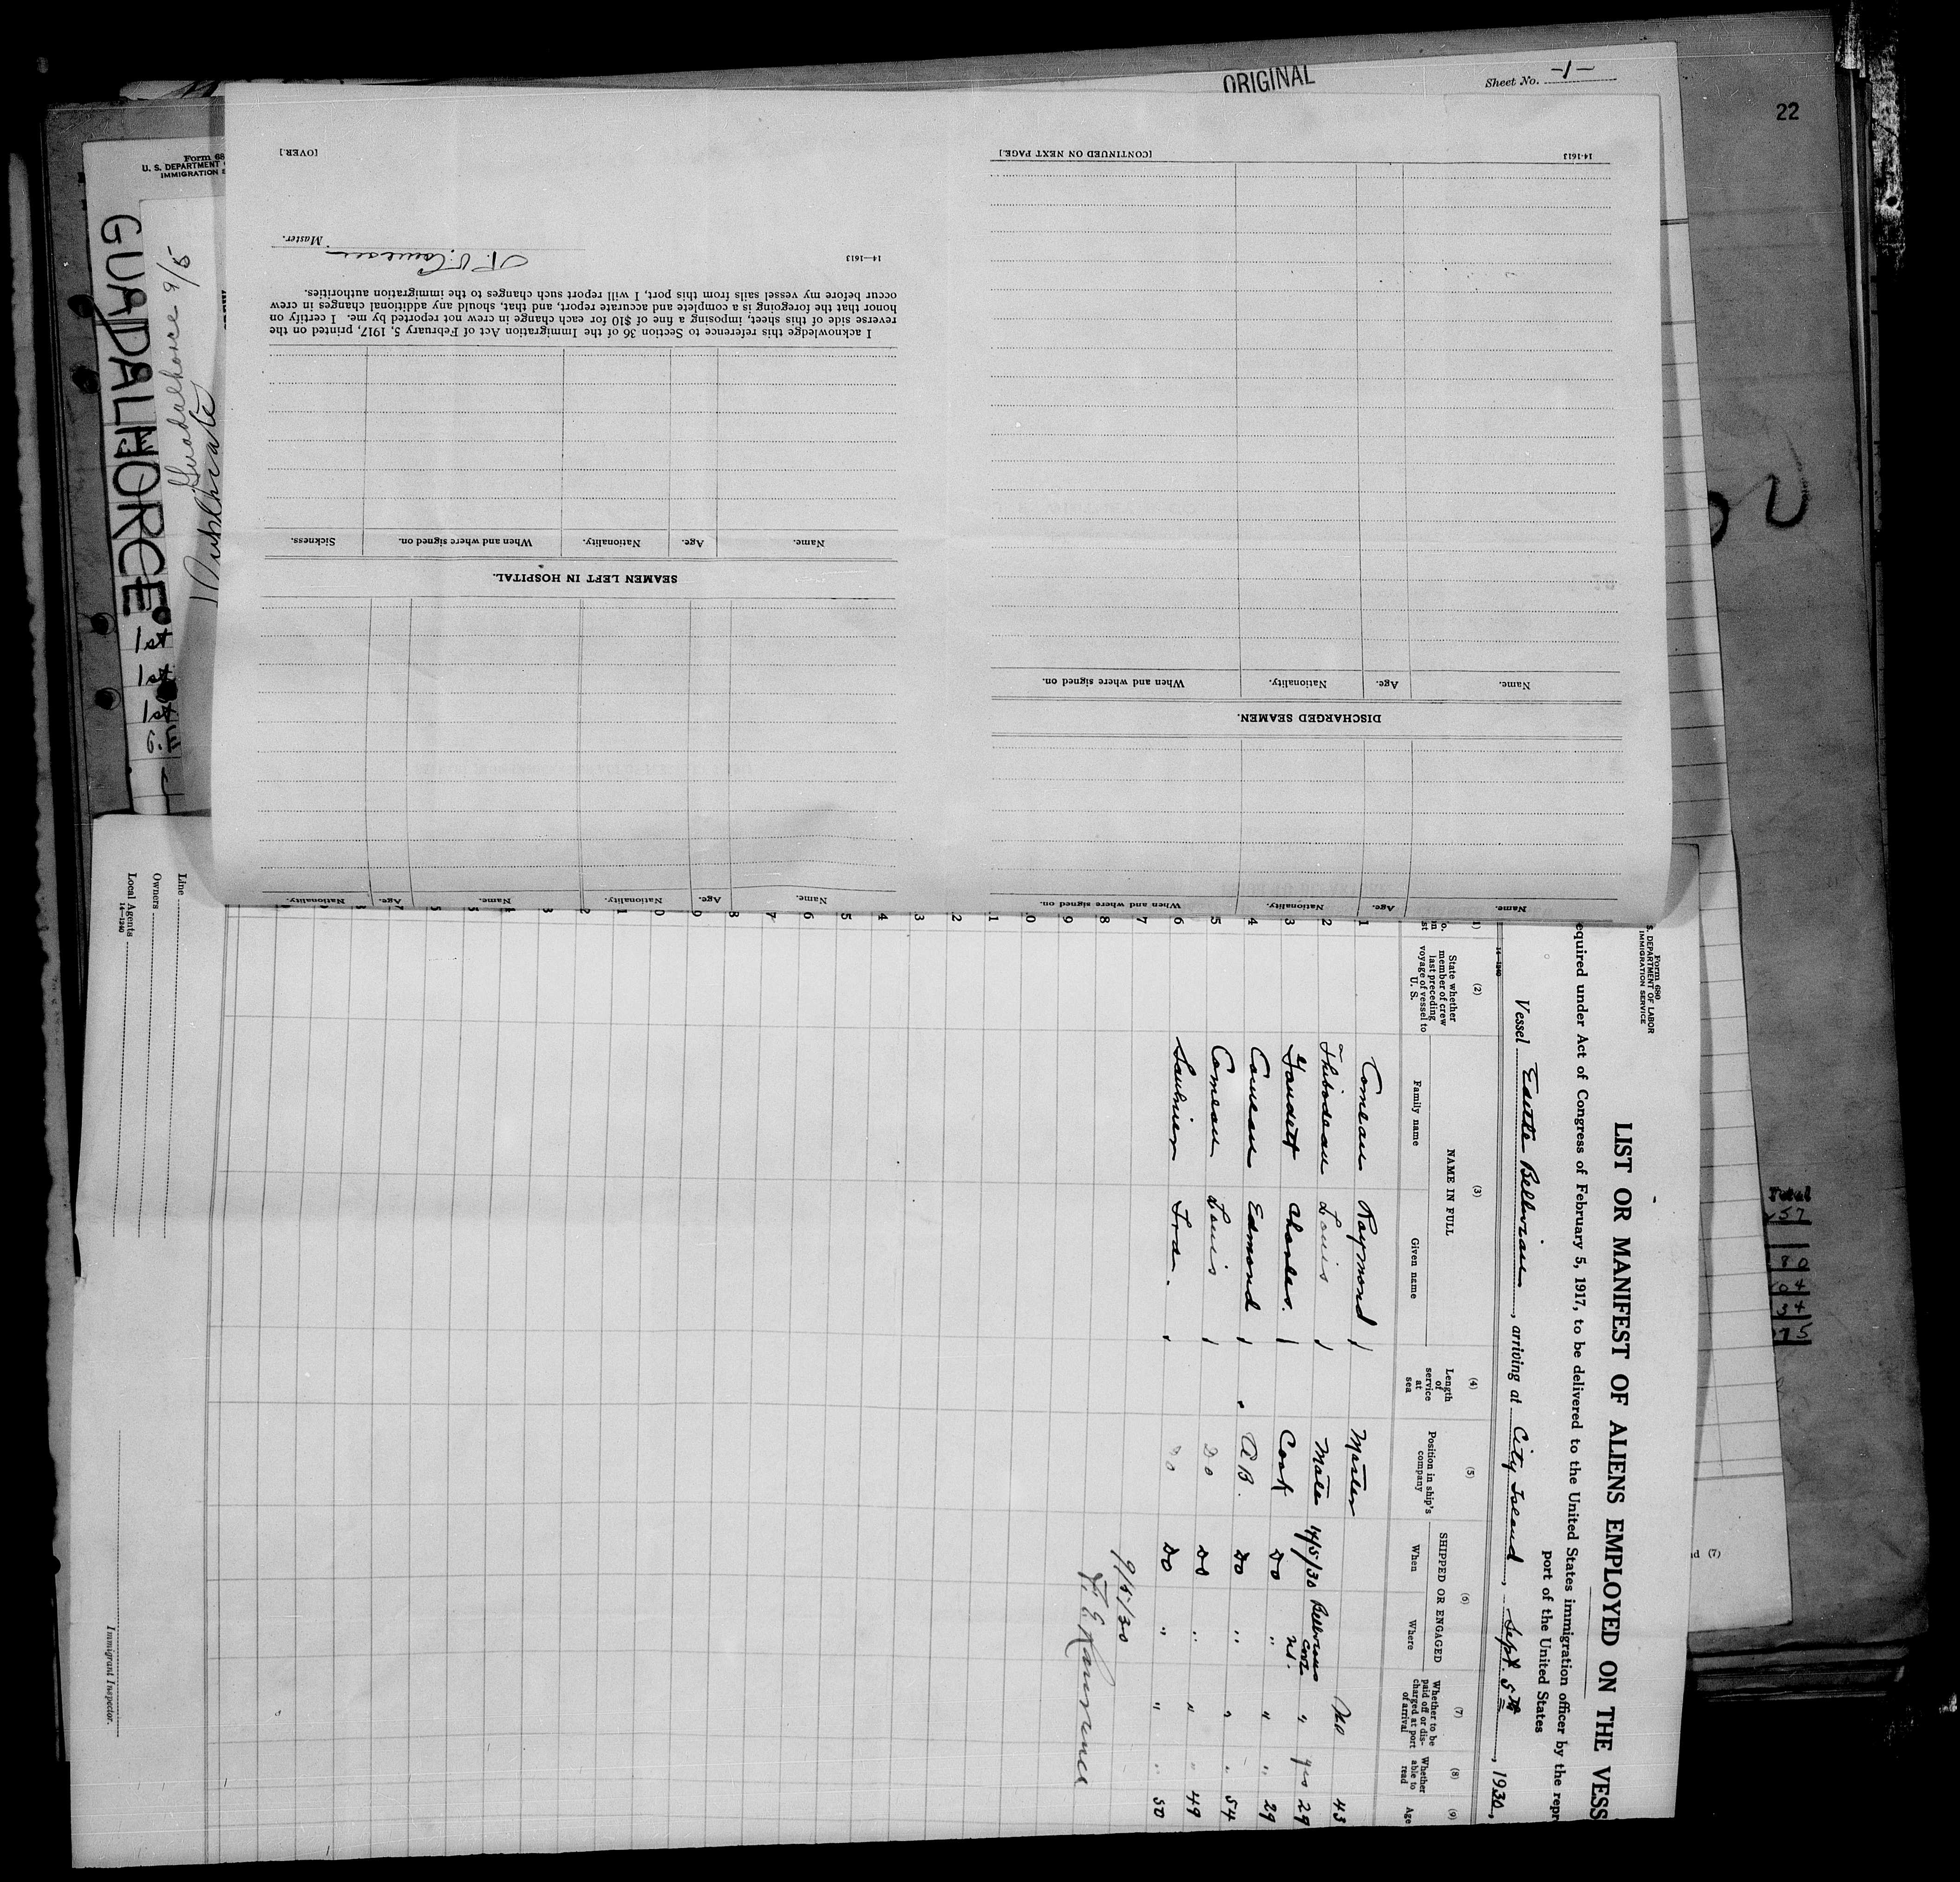 ORIGINAL
Sheet No. -1-
22
Form 68
U. S. DEPARTMENT
IMMIGRATION
GUADALHORCE
Guadalhorce 9/5
Duplicate
1st
1st
1st
[OVER.]
Master.
14—1613
I acknowledge this reference to Section 36 of the Immigration Act of February 5, 1917, printed on the
reverse side of this sheet, imposing a fine of $10 for each change in crew not reported by me. I certify on
honor that the foregoing is a complete and accurate report, and that, should any additional changes in crew
occur before my vessel sails from this port, I will report such changes to the immigration authorities.
Name. Age. Nationality. When and where signed on. Sickness.
SEAMEN LEFT IN HOSPITAL.
Name. Age. Nationality. Name. Age. Nationality.
14-1613
[CONTINUED ON NEXT PAGE.]
Name. Age. Nationality. When and where signed on.
DISCHARGED SEAMEN.
Name. Age. Nationality. When and where signed on.
Form 680
S. DEPARTMENT OF LABOR
IMMIGRATION SERVICE
LIST OR MANIFEST OF ALIENS EMPLOYED ON THE VESS
equired under Act of Congress of February 5, 1917, to be delivered to the United States immigration officer by the repr
port of the United States
Vessel Bellivian, arriving at City Island, Sept. 5th, 1930,
14—1240
(2) State whether member of crew last preceding voyage of vessel to U. S.
(3) NAME IN FULL Family name Given name
(4) Length of service at sea
(5) Position in ship's company
(6) SHIPPED OR ENGAGED When Where
(7) Whether to be paid off or discharged at port of arrival
(8) Whether able to read
(9) Age
1 Comeau Raymond Master No 43
2 Thibodeau Louis Mate 14/5/30 " yes 29
3 Gaudett Charles. Cook Do " " " 29
4 Comeau Edmond A B. Do " " " 54
5 Comeau Louis Do Do " " " 49
6 Saulnier Ira. Do Do " " " 50
9/5/30
Line
Owners
Local Agents
14—1240
Immigrant Inspector.
Total
57
80
04
34
75
d (7)